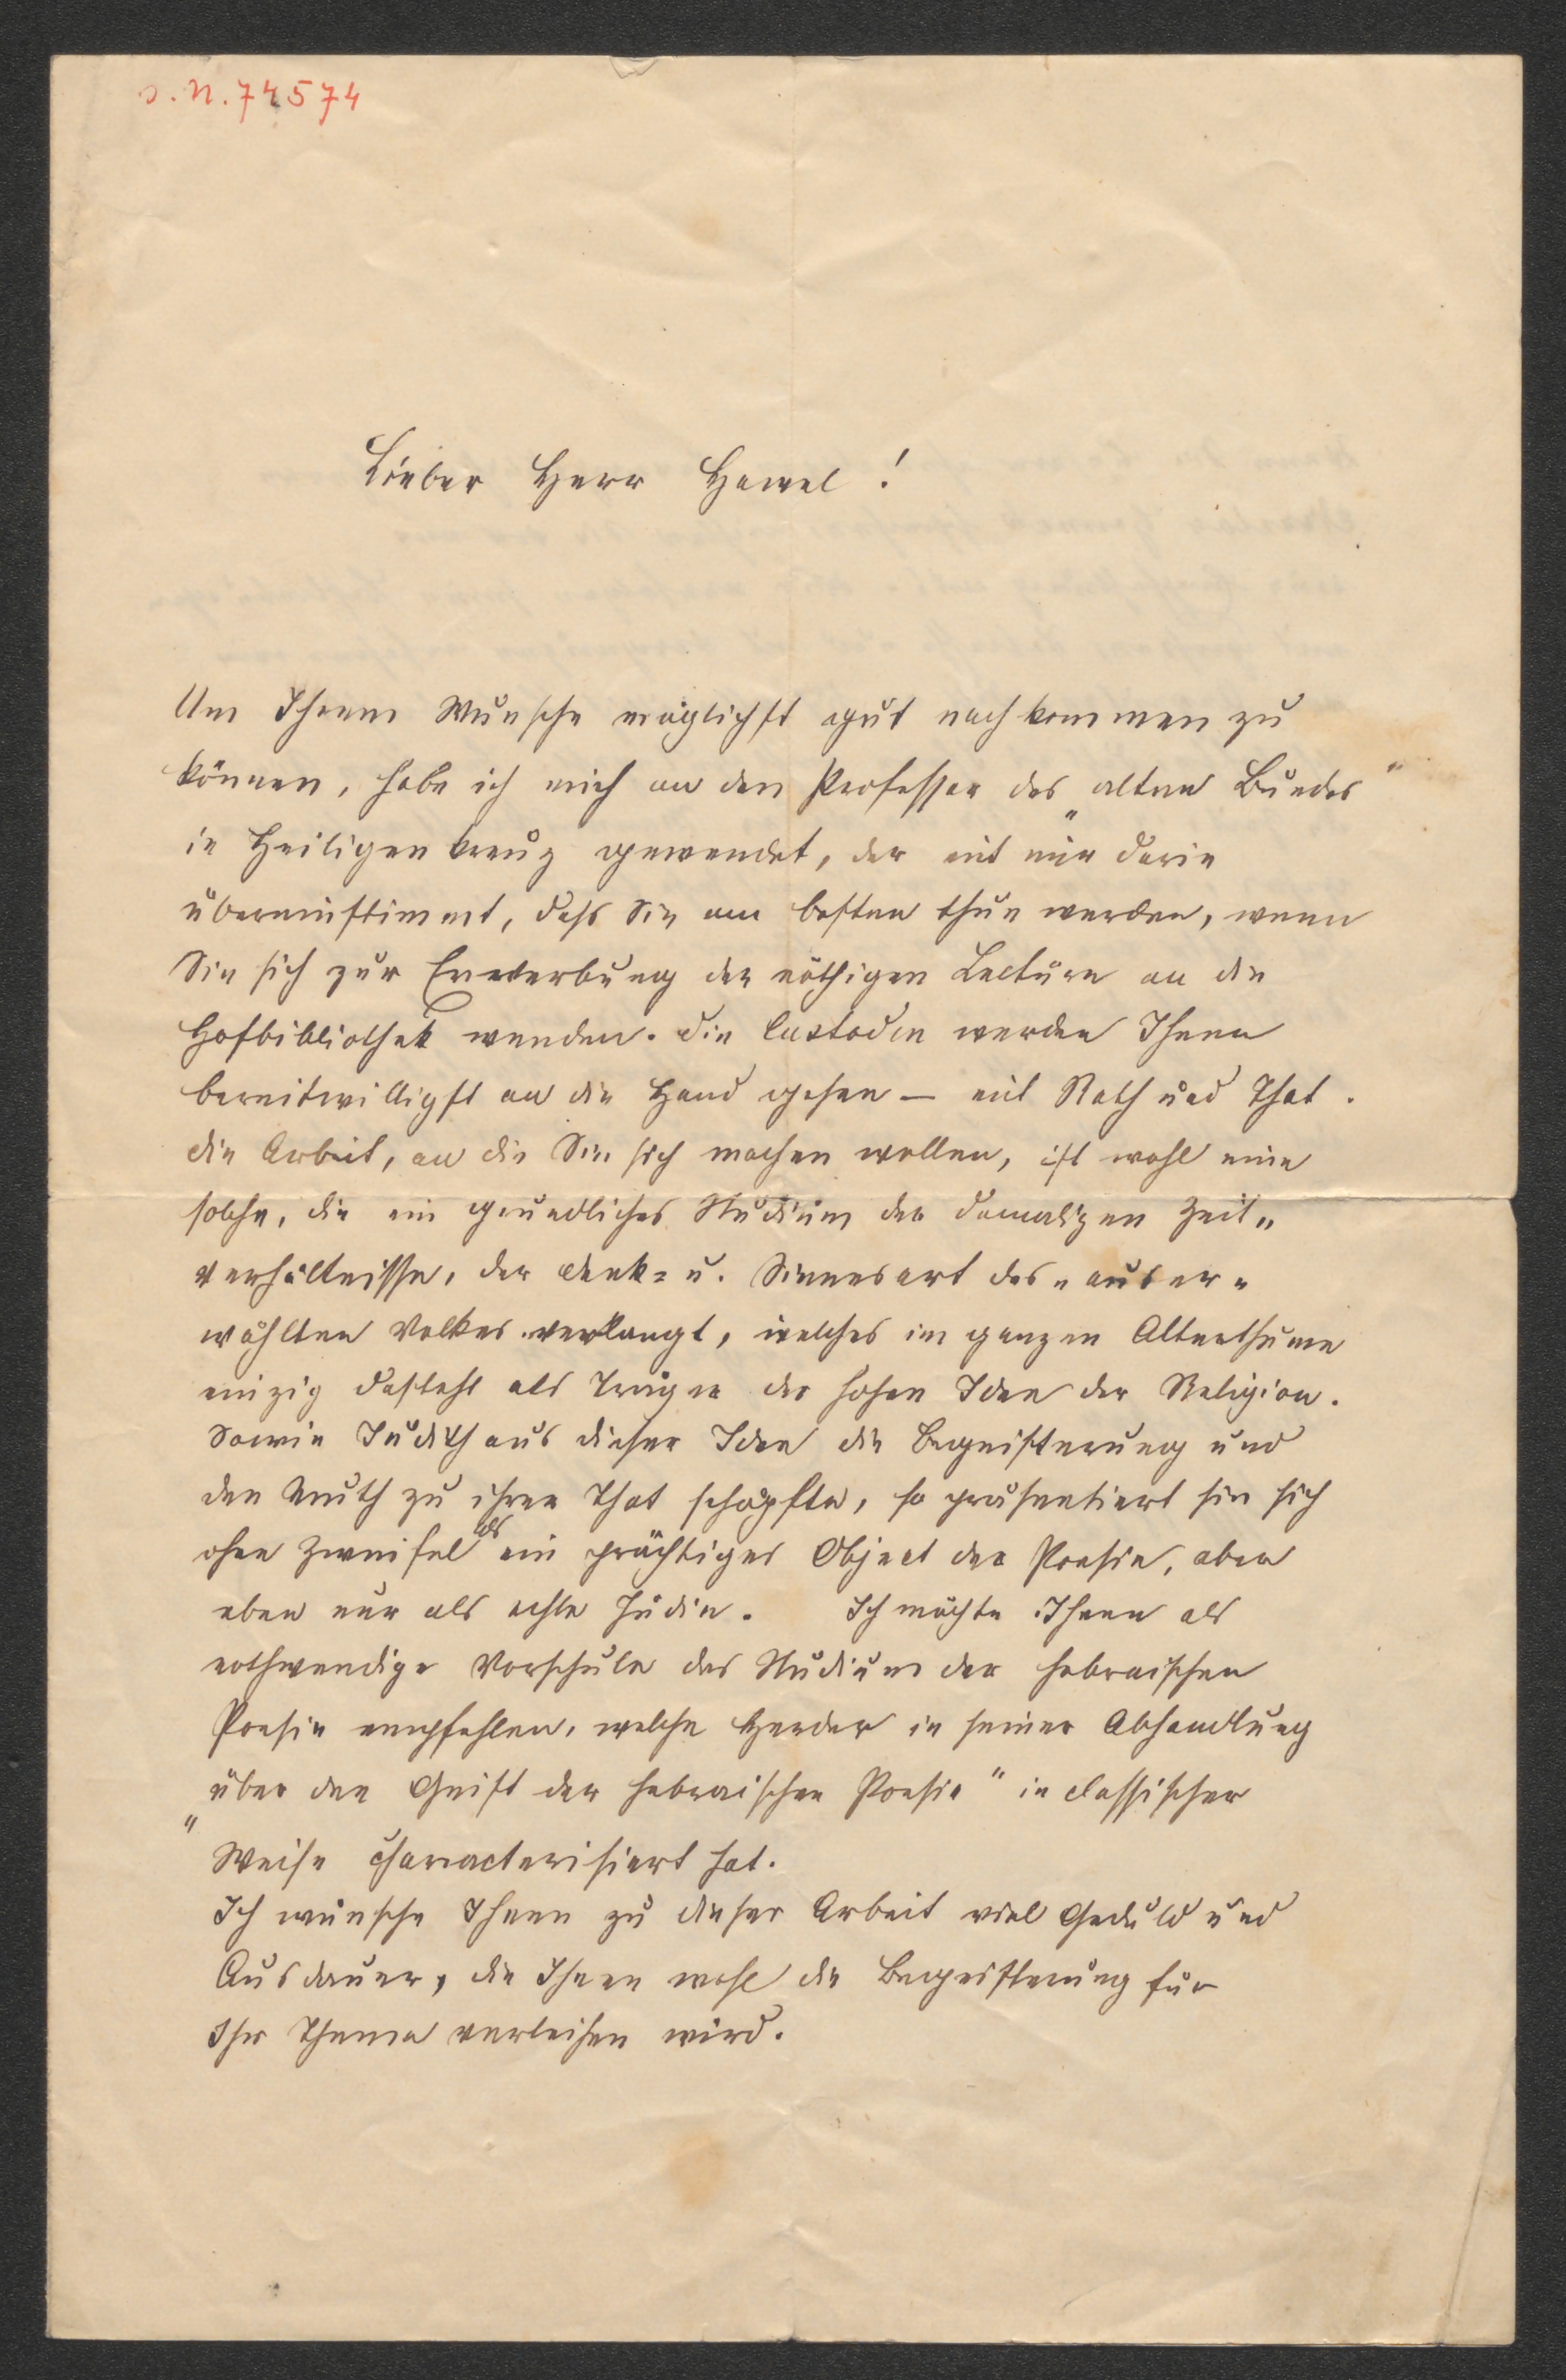 J.N. 74574
Lieber Herr Hawel!
Um Ihrem Wunsche möglichst gut nachkommen zu
können, habe ich mich an den Professor des „alten Bundes“
in Heiligenkreuz gewendet, der mit mir darin
übereinstimmt, dass Sie am besten thun werden, wenn
Sie sich zur Erwerbung der nöthigen Lectüre an die
Hofbibliothek wenden. Die Custoden werden Ihnen
bereitwilligst an die Hand gehen – mit Rath und That.
Die Arbeit, an die Sie sich machen wollen, ist wohl eine
solche, die ein gründliches Studium der damaligen Zeit„
verhältnisse, der Denk= u. Sinnesart des „auser„
wählten Volkes verlangt, welches im ganzen Alterthume
einzig dasteht als Träger der hohen Idee der Religion.
Sowie Judith aus dieser Idee die Begeisterung und
den Muth zu ihrer That schöpfte, so präsentiert sie sich
ohne Zweifel als ein prächtiges Object der Poesie, aber
eben nur als echte Jüdin. Ich möchte Ihnen als
nothwendige Vorschule das Studium der hebraischen
Poesie empfehlen, welche Herder in seiner Abhandlung
„über den Geist der hebraischen Poesie“ in classischer
Weise characterisiert hat.
Ich wünsche Ihnen zu dieser Arbeit viel Geduld und
Ausdauer, die Ihnen wohl die Begeisterung für
Ihr Thema verleihen wird.